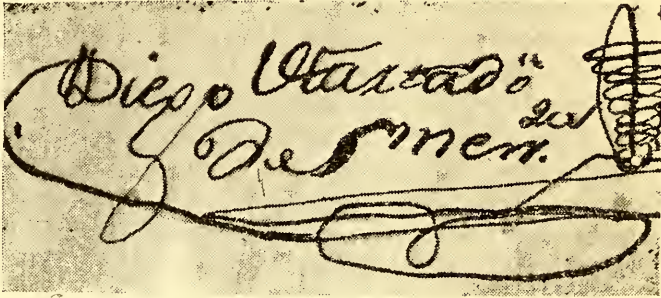 Diego Hurtado
De Men.za